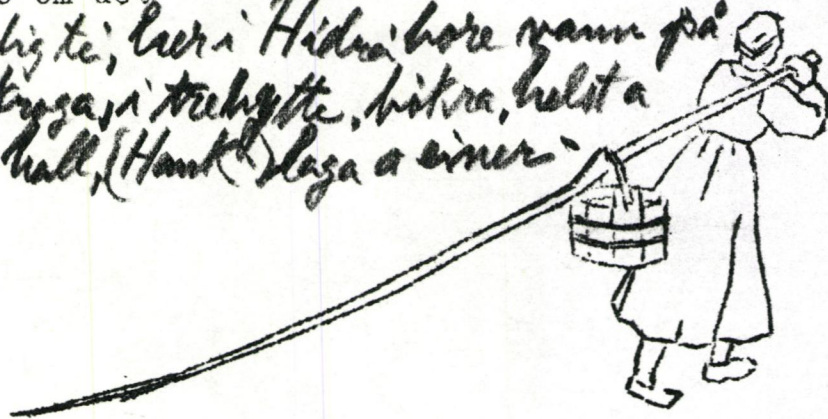 om det
ligte, her i Hidra bore vann på
i trebytte, bitra, helst a
hall, (Hank) laga a einer